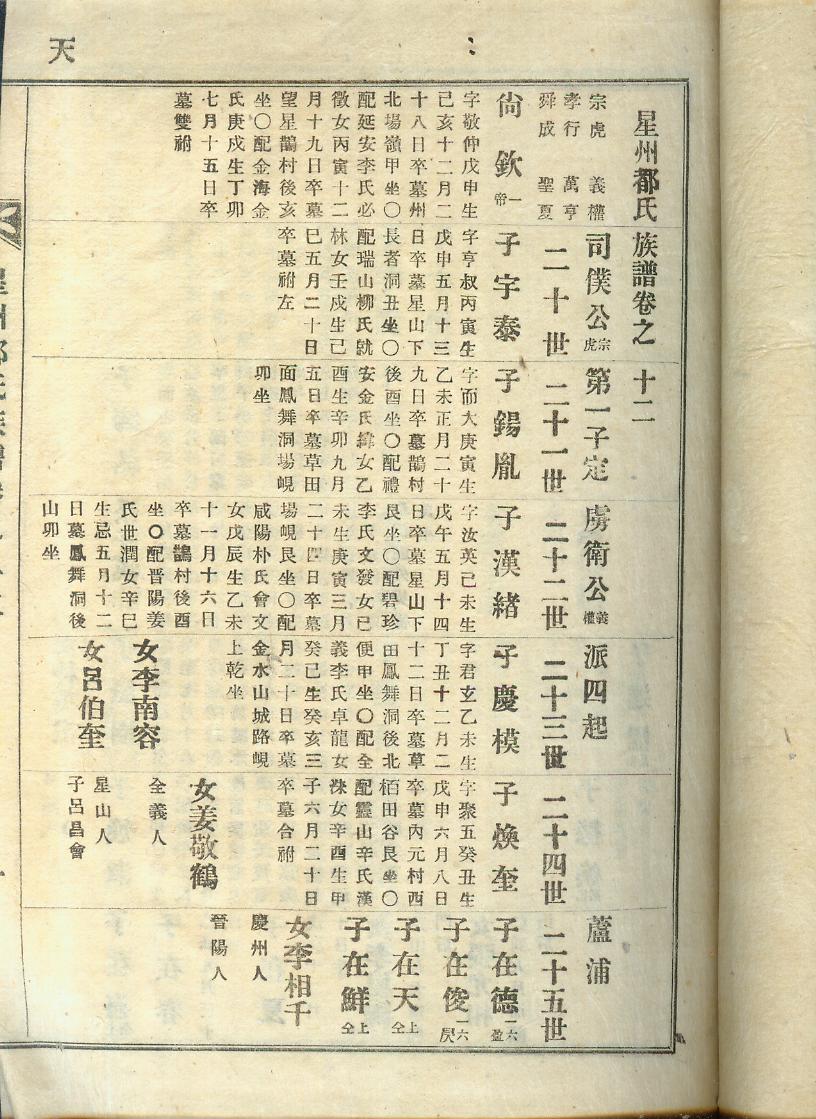 天
星州都氏族譜卷之十二
司僕公宗虎第一子定虜衛公義權派四起蘆浦
宗虎 義權
孝行 萬亨
舜成 聖夏
二十世
二十一世
二十二世
二十三世
二十四世
二十五世
尙欽一帝
字敬仲戊申生
己亥十二月二
十八日卒墓州
北場嶺甲坐〇
配延安李氏必
徵女丙寅十二
月十九日卒墓
望星鵲村後亥
坐〇配金海金
氏庚戌生丁卯
七月十五日卒
墓雙祔
子字泰
字亨叔丙寅生
戊申五月十三
日卒墓星山下
長者洞丑坐〇
配瑞山柳氏就
林女壬戌生己
巳五月二十日
卒墓祔左
子錫胤
字而大庚寅生
乙未正月二十
九日卒墓鵲村
後酉坐〇配禮
安金氏緯女乙
酉生辛卯九月
五日卒墓草田
面鳳舞洞場峴
卯坐
子漢緖
字汝英己未生
戊午五月十四
日卒墓星山下
艮坐〇配碧珍
李氏文發女己
未生庚寅三月
二十四日卒墓
場峴艮坐〇配
咸陽朴氏會文
女戊辰生乙未
十一月十六日
卒墓鵲村後酉
坐〇配晋陽姜
氏世潤女辛巳
生忌五月十二
日墓鳳舞洞後
山卯坐
子慶模
字君玄乙未生
丁丑十二月二
十二日卒墓草
田鳳舞洞後北
便甲坐〇配全
義李氏卓龍女
癸巳生癸亥三
月二十日卒墓
金水山城路峴
上乾坐
女李南容
全義人
女呂伯奎
星山人
子呂昌會
子煥奎
字聚五癸丑生
戊申六月八日
卒墓內元村西
栢田谷艮坐〇
配靈山辛氏漢
洙女辛酉生甲
子六月二十日
卒墓合祔
女姜敬鶴
晉陽人
子在德一六盈
子在俊一六昃
子在天上仝
子在鮮上仝
女李相千
慶州人